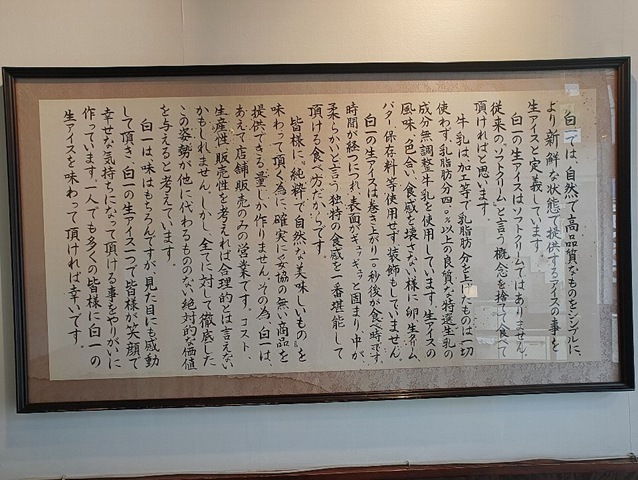 白一では、自然で高品質なものをシンプルに、
より新鮮な状態で提供するアイスの事を
生アイスと定義しています。
白一の生アイスはソフトクリームではありません。
従来の「ソフトクリーム」と言う概念を捨てて食べて
頂ければと思います。
牛乳は、加工等で乳脂肪分を上げたものは一切
使わず、乳脂肪分四・〇%以上の良質な特選生乳の
成分無調整牛乳を使用しています。生アイスの
風味、色合い、食感を壊さない様に卵、生クリーム、
バター、保存料等使用せず、装飾もしていません。
白一の生アイスは巻き上がり一〇秒後が食べ時です。
時間が経つにつれ、表面がギュッギュっと固まり、中が
柔らかいと言う独特の食感を一番堪能して
頂ける食べ方だからです。
皆様に、純粋で自然な美味しいものを
味わって頂く為に、確実に妥協の無い商品を
提供できる量しか作りません。その為、白一は、
あえて店舗販売のみの営業です。コスト、
生産性、販売性を考えれば合理的とは言えない
かもしれません。しかし、全てに対して徹底した
この姿勢が他に代わるもののない絶対的な価値
を与えると考えています。
白一は、味はもちろんですが、見た目にも感動
して頂き、白一の生アイス一つで皆様が笑顔で
幸せな気持ちになって頂ける事をやりがいに
作っています。一人でも多くの皆様に白一の
生アイスを味わって頂ければ幸いです。